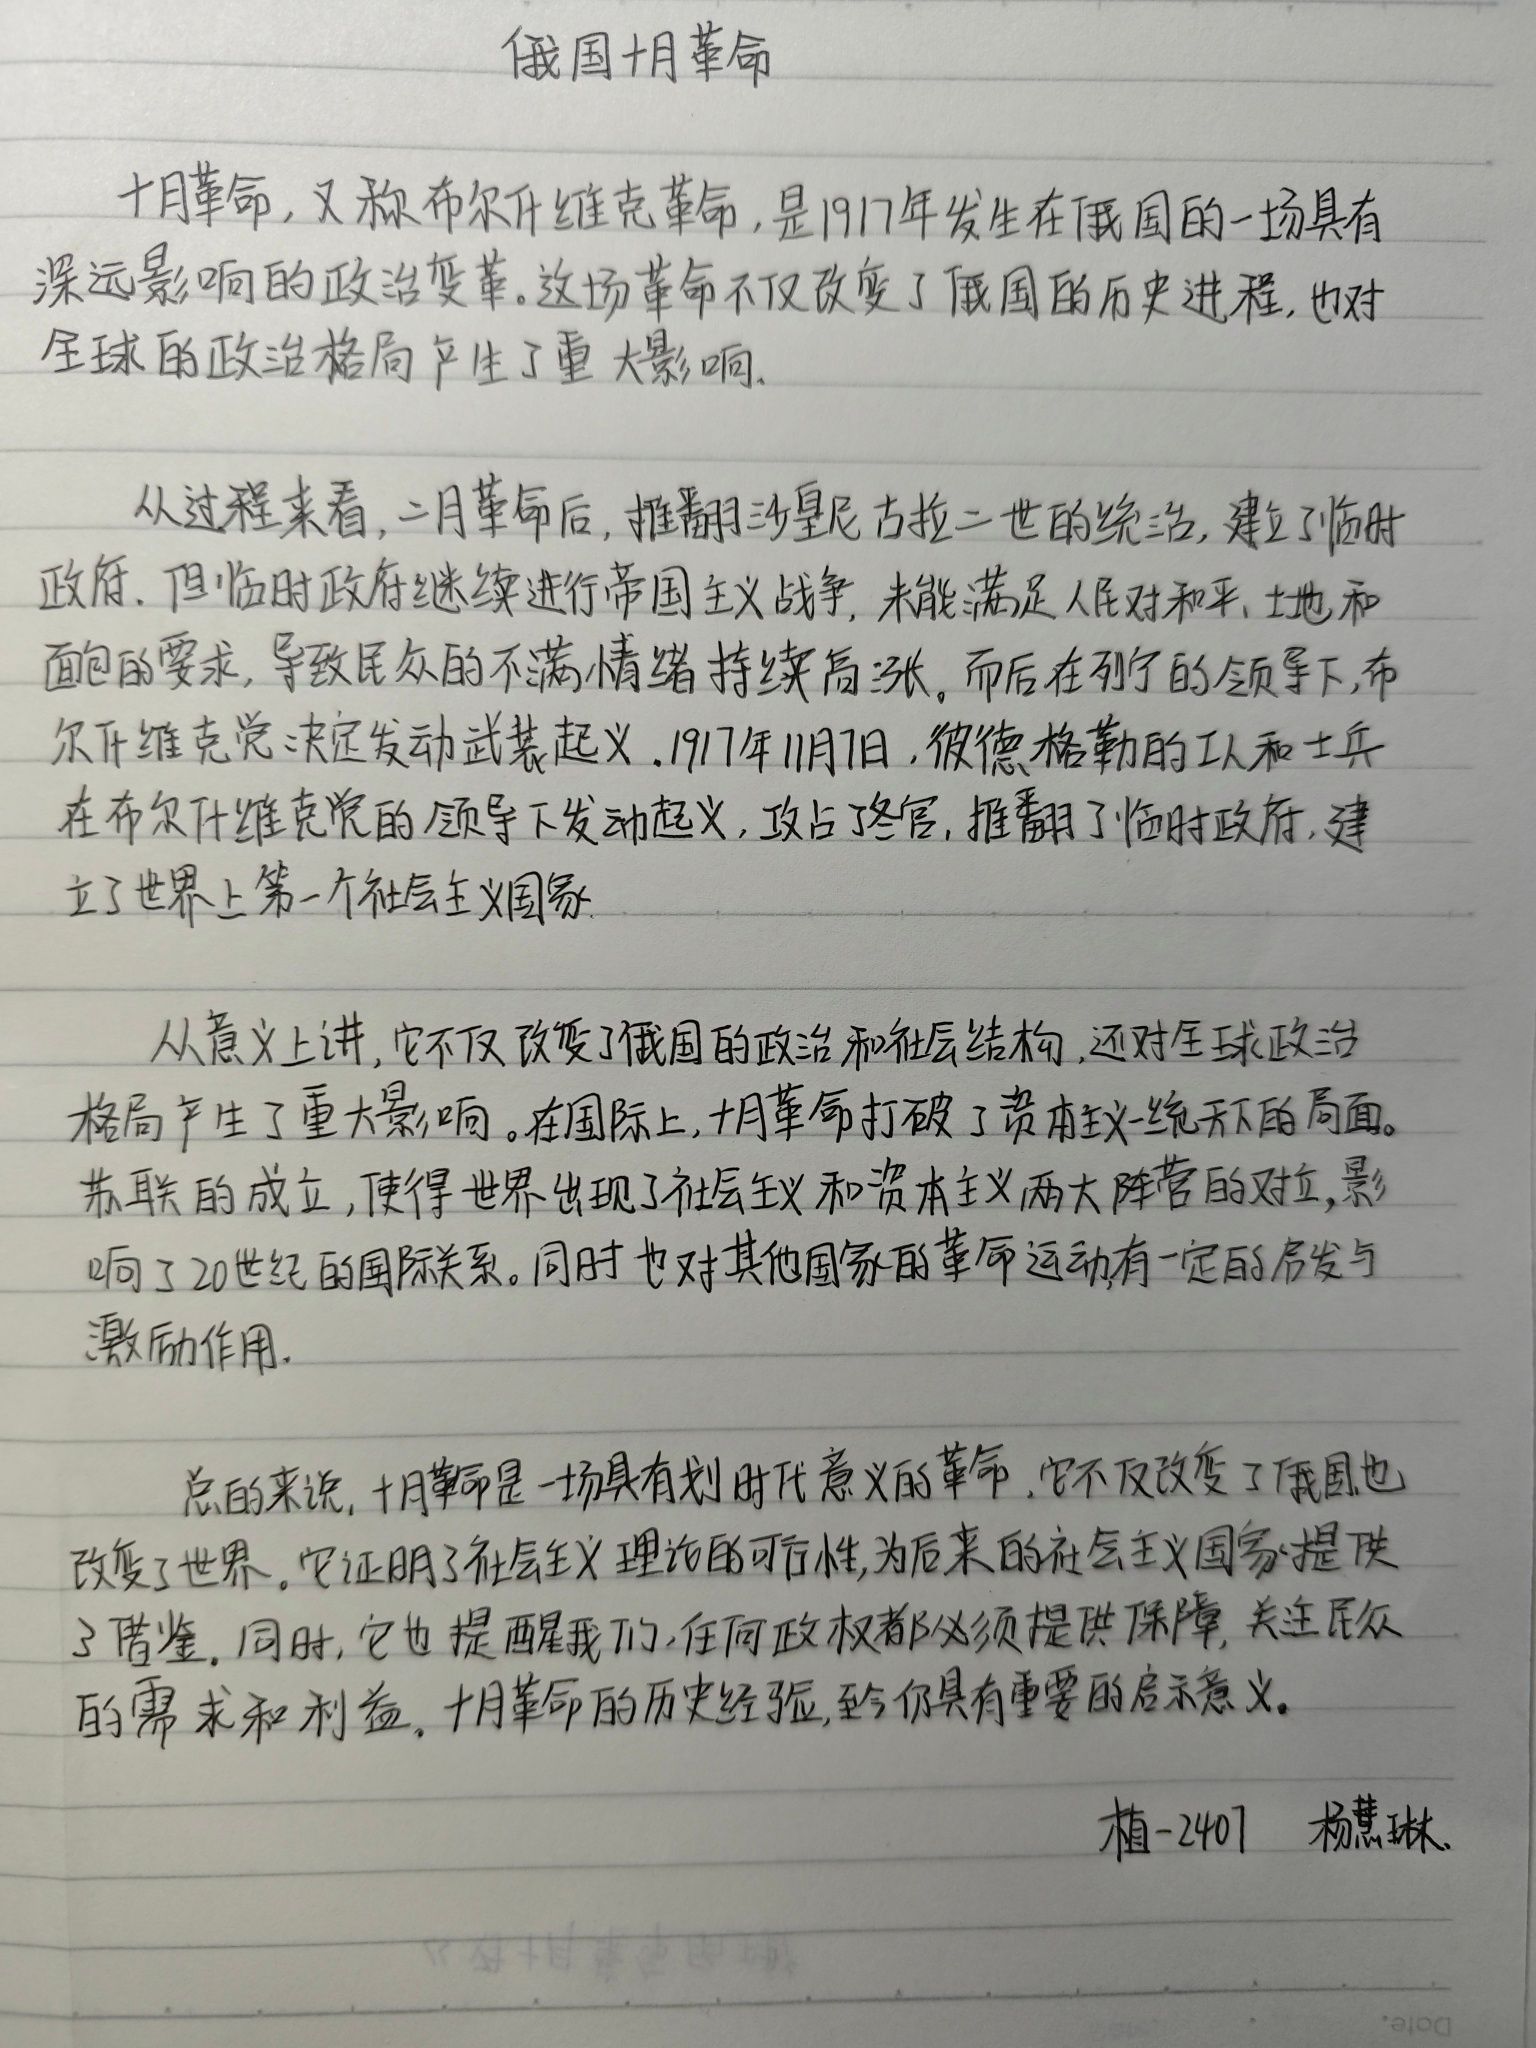 俄国十月革命
十月革命,又称布尔什维克革命,是1917年发生在俄国的一场具有
深远影响的政治变革。这场革命不仅改变了俄国的历史进程,也对
全球的政治格局产生了重大影响.
从过程来看,二月革命后,推翻沙皇尼古拉二世的统治,建立了临时
政府.但临时政府继续进行帝国主义战争,未能满足人民对和平、土地和
面包的要求,导致民众的不满情绪持续高涨。而后在列宁的领导下,布
尔什维克党决定发动武装起义.1917年11月7日,彼德格勒的工人和士兵
在布尔什维克党的领导下发动起义,攻占了冬宫,推翻了临时政府,建
立了世界上第一个社会主义国家.
从意义上讲,它不仅改变了俄国的政治和社会结构,还对全球政治
格局产生了重大影响。在国际上,十月革命打破了资本主义一统天下的局面。
苏联的成立,使得世界出现了社会主义和资本主义两大阵营的对立,影
响了20世纪的国际关系。同时也对其他国家的革命运动,有一定的启发与
激励作用.
总的来说,十月革命是一场具有划时代意义的革命.它不仅改变了俄国,也
改变了世界。它证明了社会主义理论的可行性,为后来的社会主义国家提供
了借鉴.同时,它也提醒我们,任何政权都必须提供保障,关注民众
的需求和利益.十月革命的历史经验,至今仍具有重要的启示意义。
植-2407 杨蕙琳.
Date.